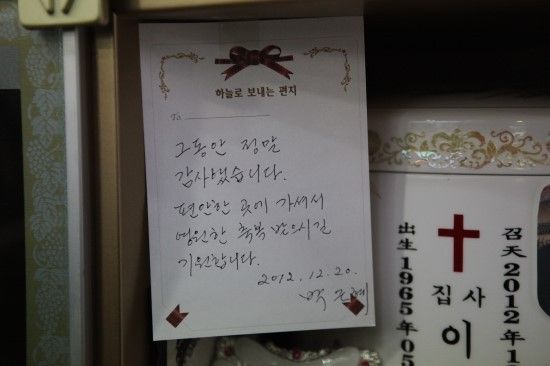 하늘로 보내는 편지
To.
그동안 정말
감사했습니다.
편안한 곳에 가셔서
영원한 축복 받으시길
기원합니다.
2012. 12. 20.
박근혜
召天 2012年 1
집사
이
出生 1965年 05